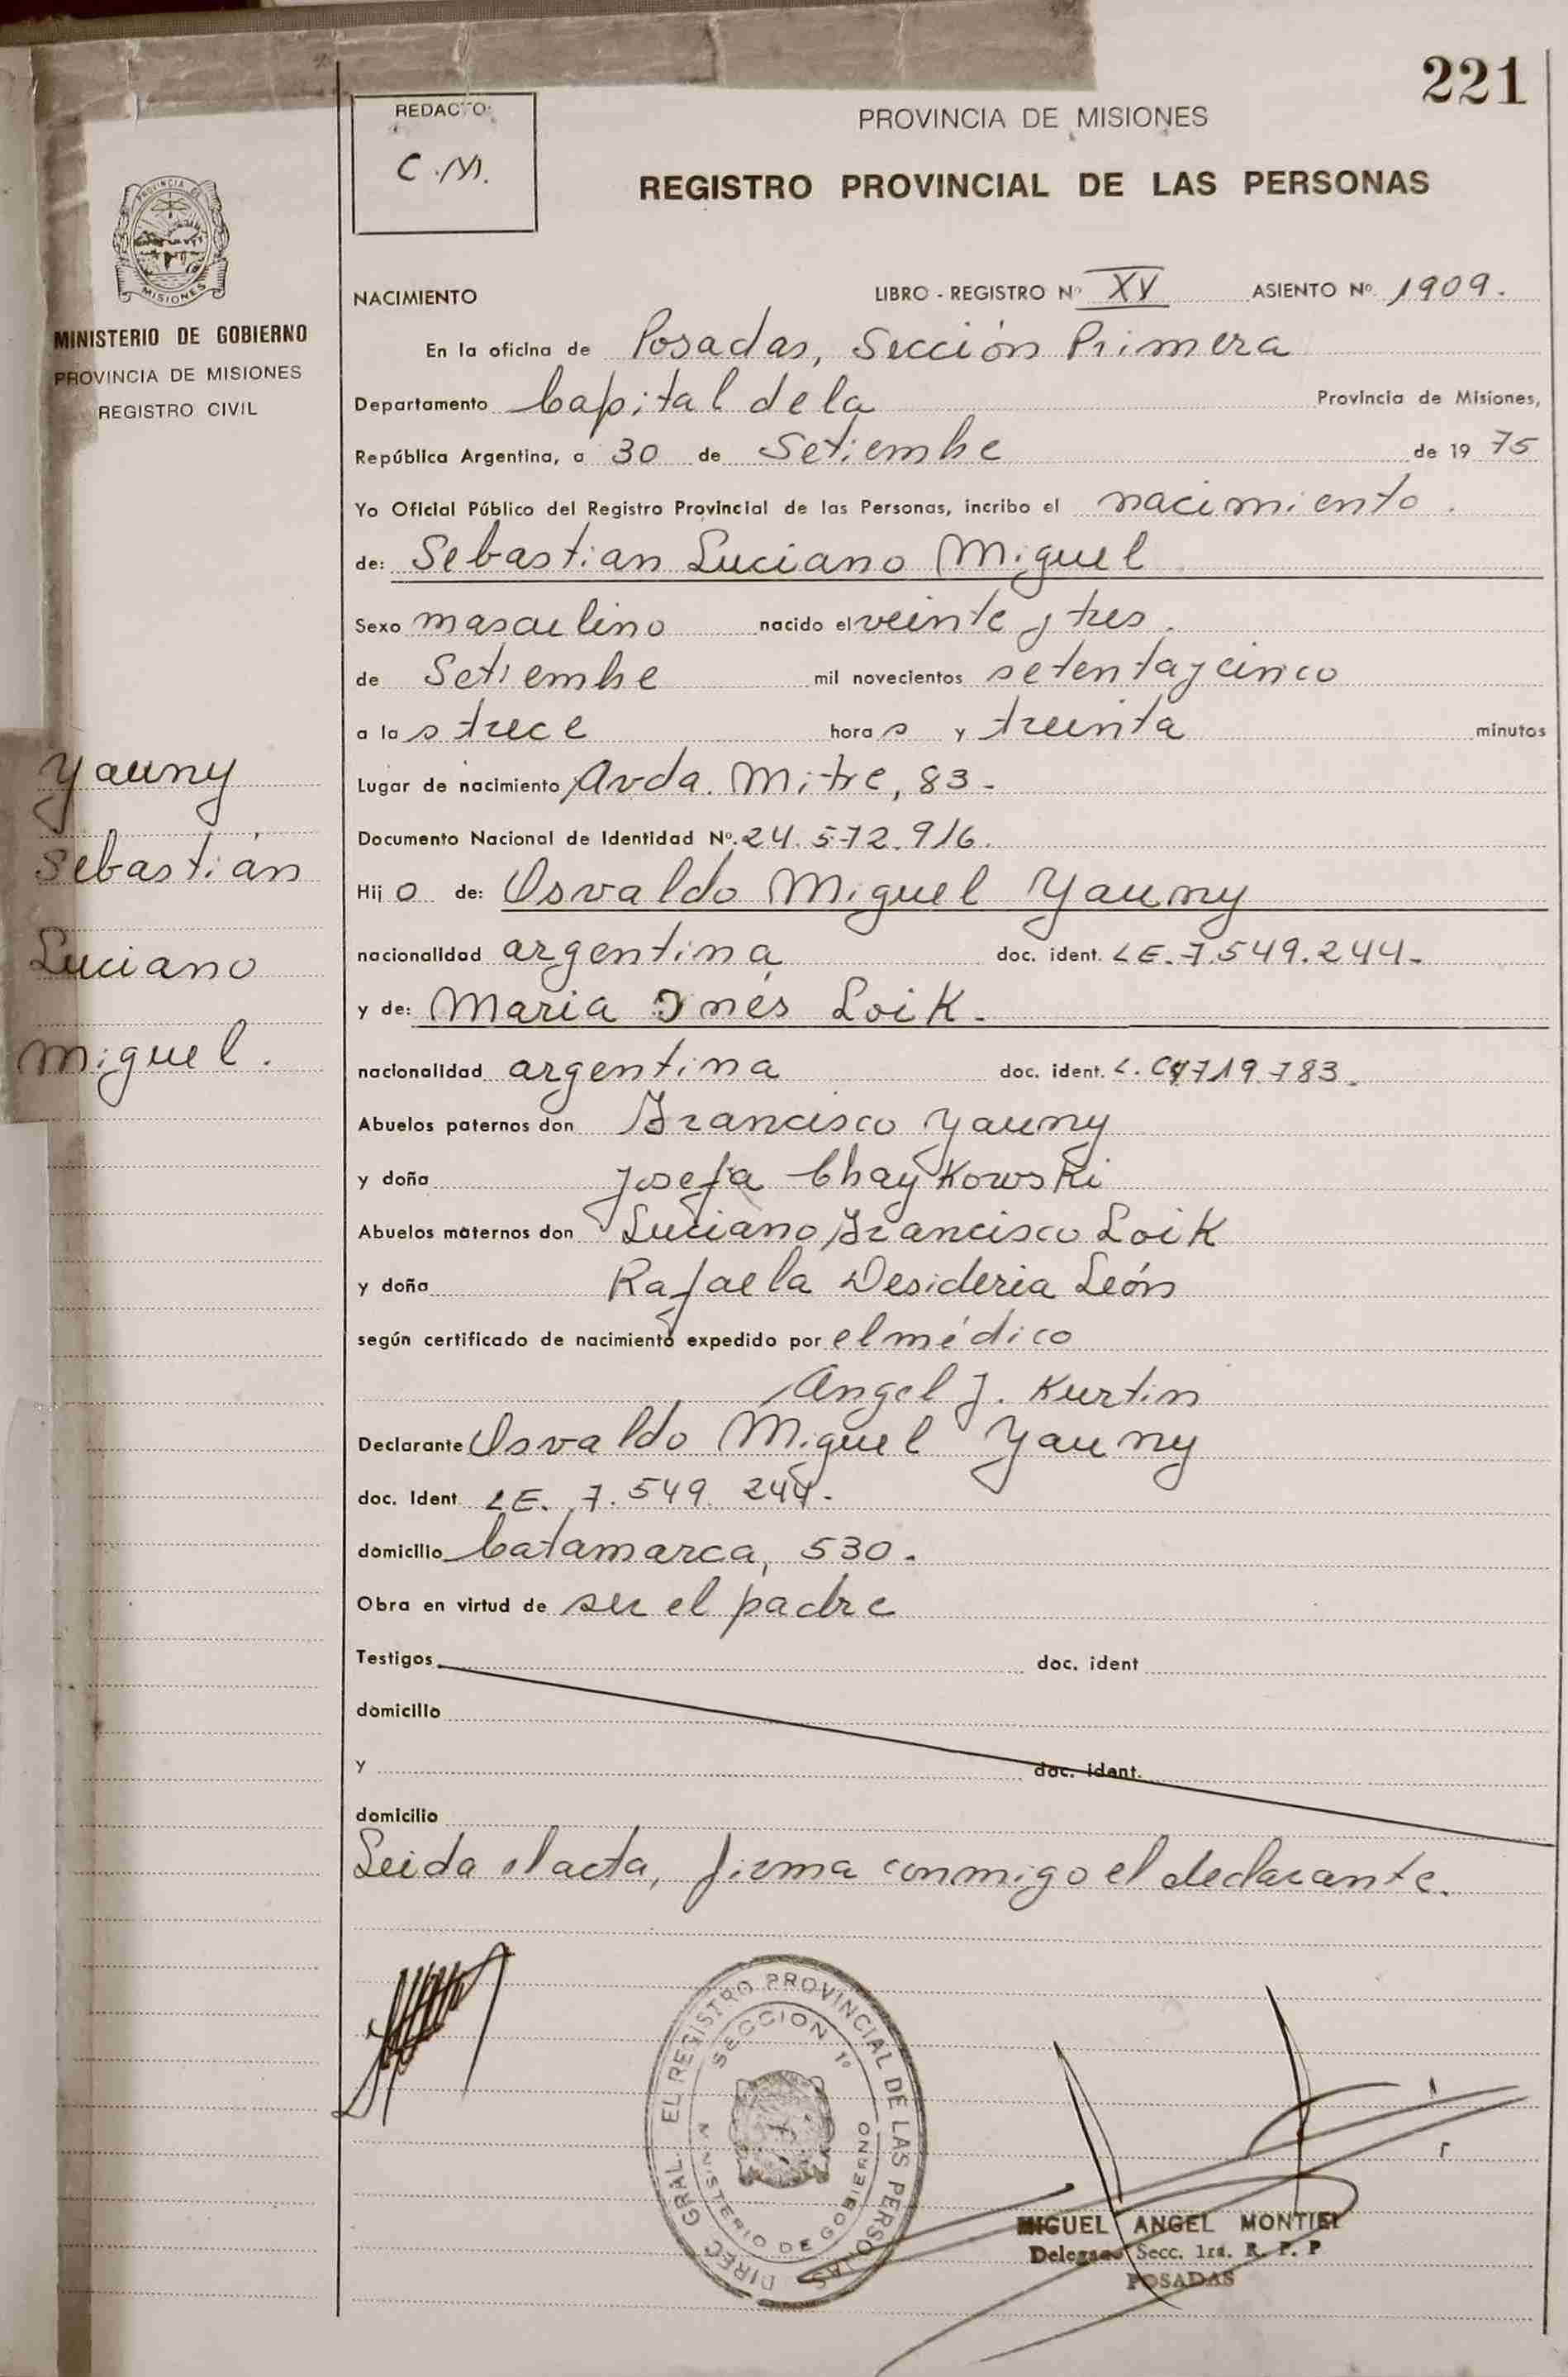 221
REDACTO:
C.M.
PROVINCIA DE MISIONES
REGISTRO PROVINCIAL DE LAS PERSONAS
PROVINCIA DE
MISIONES
MINISTERIO DE GOBIERNO
PROVINCIA DE MISIONES
REGISTRO CIVIL
NACIMIENTO LIBRO - REGISTRO Nº XV ASIENTO Nº 1909.
En la oficina de Posadas, Sección Primera
Departamento Capital de la Provincia de Misiones,
República Argentina, a 30 de Setiembre de 1975
Yo Oficial Público del Registro Provincial de las Personas, incribo el nacimiento.
de: Sebastian Luciano Miguel
Sexo masculino nacido el veinte y tres.
de Setiembre mil novecientos setenta y cinco
a las trece horas y treinta minutos
Lugar de nacimiento Avda. Mitre, 83-
Documento Nacional de Identidad Nº. 24.572.916.
Hijo de: Osvaldo Miguel Yauny
nacionalidad argentina doc. ident. LE. 7.549.244-
y de: Maria Inés Loik.
nacionalidad argentina doc. ident. L.C. 719.783.
Abuelos paternos don Francisco Yauny
y doña Josefa Chaykowski
Abuelos maternos don Luciano Francisco Loik
y doña Rafaela Desideria León
según certificado de nacimiento expedido por el médico
Angel J. Kurtin
Declarante Osvaldo Miguel Yauny
doc. Ident LE. 7.549.244.
domicilio Catamarca, 530.
Obra en virtud de ser el padre
Testigos doc. ident
domicilio
y doc. ident.
domicilio
Leida el acta, firma conmigo el declarante.
Yauny
Sebastián
Luciano
Miguel.
DIREC GRAL EL REGISTRO PROVINCIAL DE LAS PERSONAS
SECCION 1º
MINISTERIO DE GOBIERNO
MIGUEL ANGEL MONTIEL
Delegado Secc. 1ra. R. P. P
POSADAS